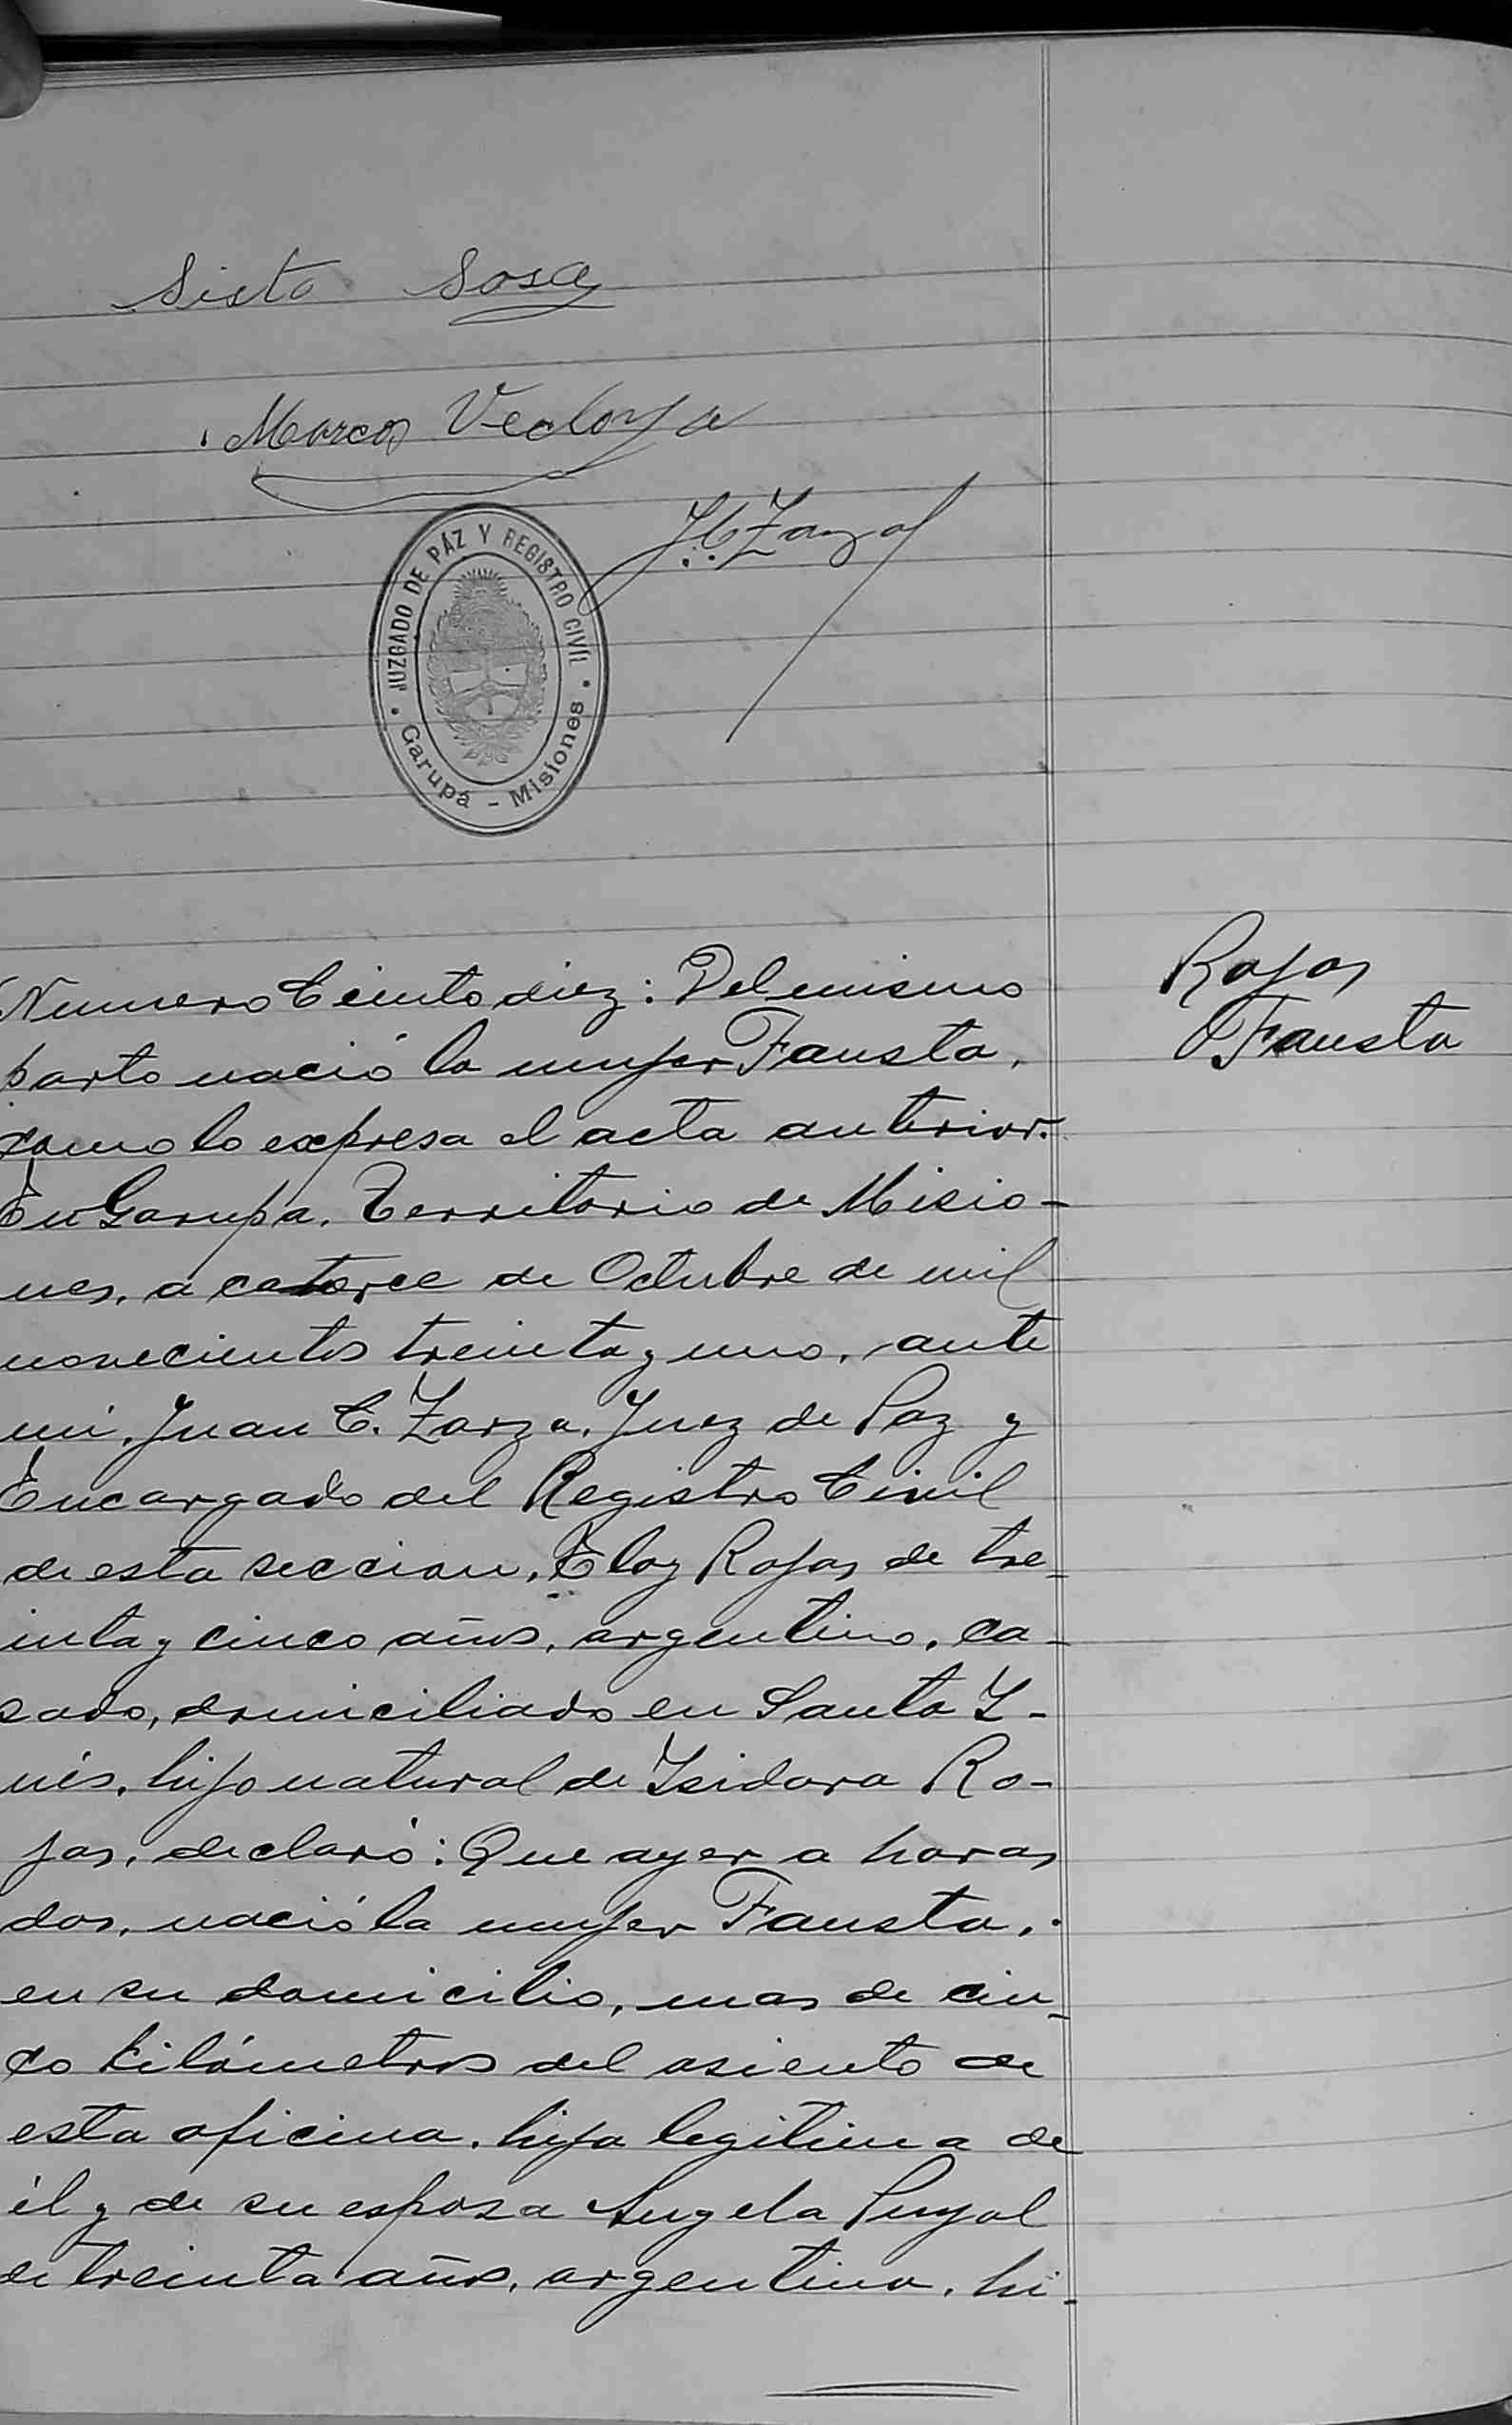 Sixto Sosa
Marcos Vedoya
J.C. Zarza
JUZGADO DE PAZ Y REGISTRO CIVIL
Garupá - Misiones
Rojas
Fausta
Numero Ciento diez: Del mismo
parto nació la mujer Fausta,
como lo expresa el acta anterior.
En Garupa, Territorio de Misio-
nes, a catorce de Octubre de mil
novecientos treinta y uno, ante
mí, Juan C. Zarza, Juez de Paz y
Encargado del Registro Civil
de esta seccion, Eloy Rojas de tre-
inta y cinco años, argentino, ca-
sado, domiciliado en Santa I-
nés, hijo natural de Isidora Ro-
jas, declaró: Que ayer a horas
dos, nació la mujer Fausta,
en su domicilio, mas de cin-
co kilómetros del asiento de
esta oficina, hija legitima de
él y de su esposa Angela Puyol
de treinta años, argentina, hi-